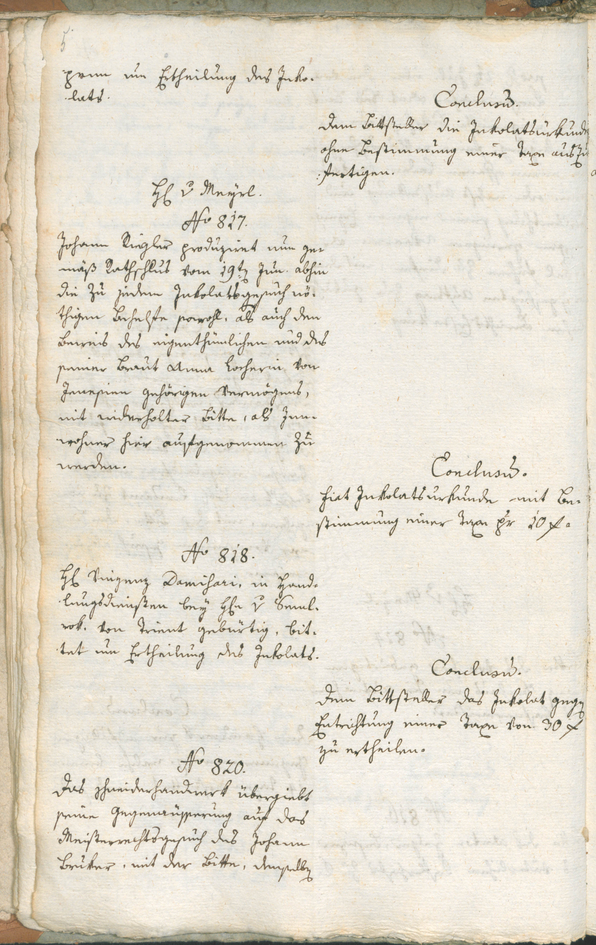 5
prnn um Ertheilung des Inko-
lats.
Conclusũ.
Dem Bittsteller die Inkolatsurkunde
ohne Bestimmung einer Taxe auszu-
fertigen.
H. v Meyrl.
No 817.
Johann Riegler produziret nun ge-
mäß Rathschlus vom 19t Jun. abhin
die zu jedem Inkolatsgesuch nö-
thigen Behelfe sowohl, als auch den
Beweis des eigenthümlichen und des
seiner Braut Anna Locherin von
Jenesien gehörigen Vermögens,
mit widerholter Bitte, als Inn-
wohner hier aufgenommen zu
werden.
Conclusũ.
Fiat Inkolatsurkunde mit Be-
stimmung einer Taxe pr 10 f.
No 818.
H. Vinzenz Damihari, in Hand-
lungsdiensten bey H. v
von Trient gebürtig, bit-
tet um Ertheilung des Inkolats.
Conclusũ.
Dem Bittsteller das Inkolat gegen
Entrichtung einer Taxe von 30 f
zu ertheilen.
No 820.
Das Schneiderhandwerk übergiebt
seine Gegenäusserung auf das
Meisterrechtsgesuch des Johann
Bruker, mit der Bitte, denselben